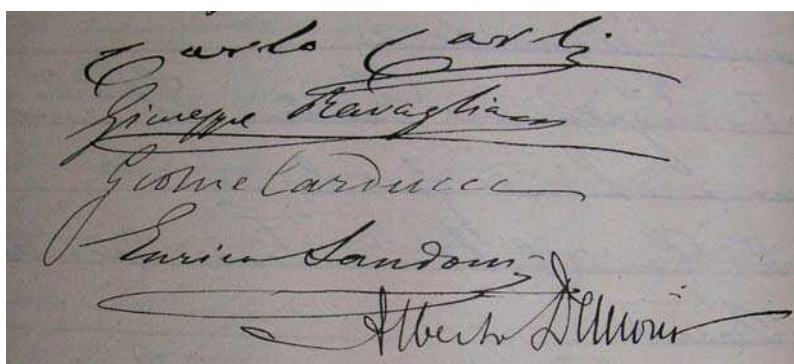 Carlo Carli
Giuseppe Ravaglia
Giosue Carducci
Enrico Sandoni
Alberto